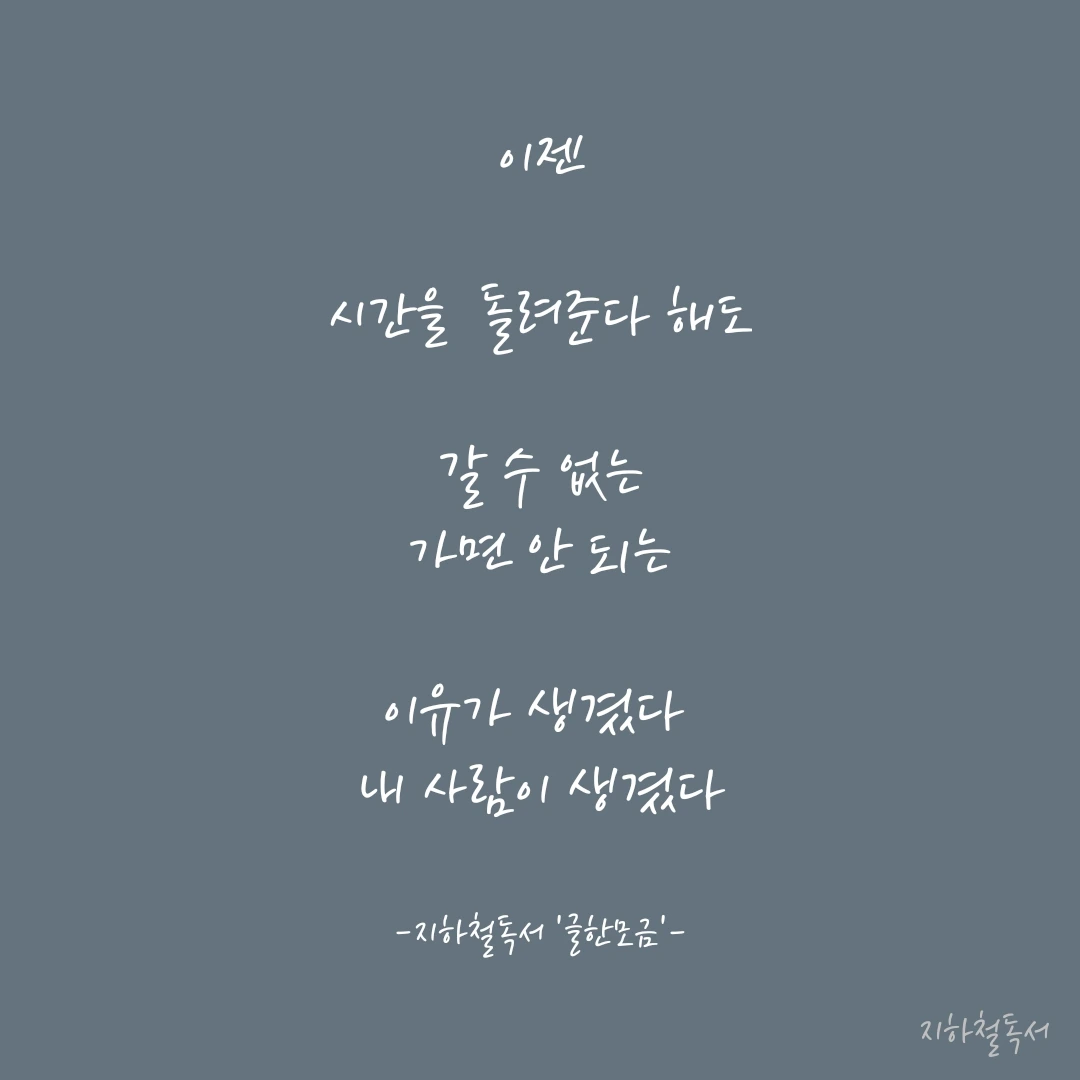 이젠
시간을 돌려준다 해도
갈 수 없는
가면 안 되는
이유가 생겼다
내 사람이 생겼다
-지하철독서 '글한모금'-
지하철독서